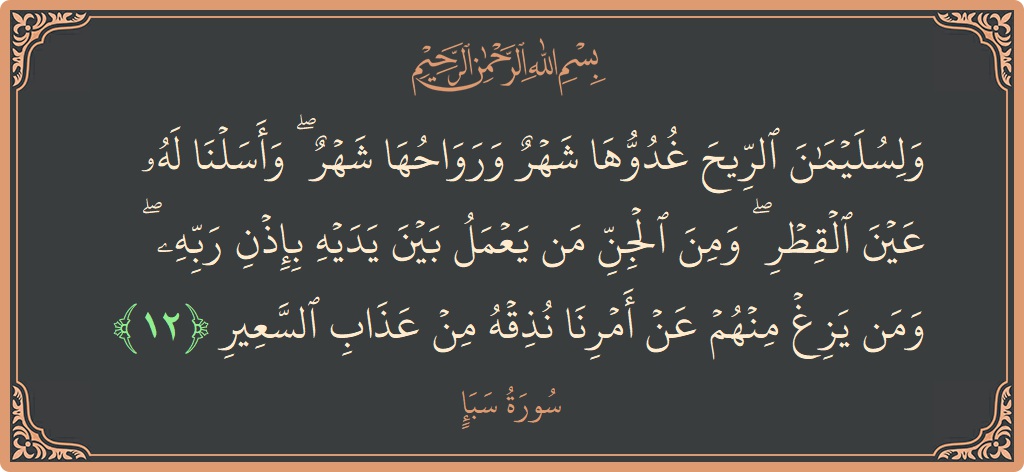 بِسْمِ اللَّهِ الرَّحْمَٰنِ الرَّحِيمِ
وَلِسُلَيْمَٰنَ ٱلرِّيحَ غُدُوُّهَا شَهْرٌ وَرَوَاحُهَا شَهْرٌ ۖ وَأَسَلْنَا لَهُۥ
عَيْنَ ٱلْقِطْرِ ۖ وَمِنَ ٱلْجِنِّ مَن يَعْمَلُ بَيْنَ يَدَيْهِ بِإِذْنِ رَبِّهِۦ ۖ
وَمَن يَزِغْ مِنْهُمْ عَنْ أَمْرِنَا نُذِقْهُ مِنْ عَذَابِ ٱلسَّعِيرِ ﴿١٢﴾
سُورَةُ سَبَإٍ